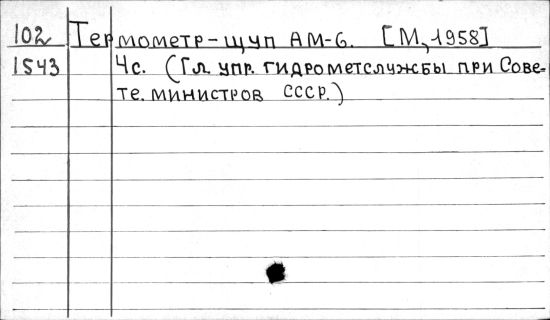 102 Термометр-щуп АМ-6. [М., 1958]
1543 4с. (Гл. упр. гидрометслужбы при Сове-
те. министров СССР.)